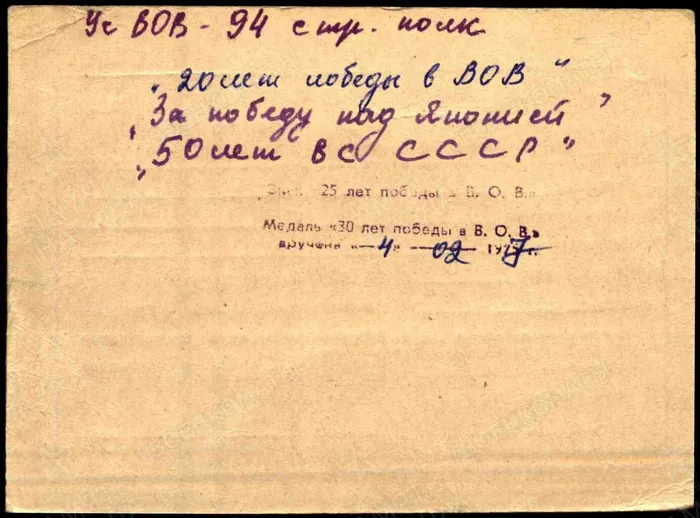 Уч ВОВ - 94 стр. полк
„20 лет победы в ВОВ"
„За победу над Японией"
„50 лет ВС СССР"
Знак 25 лет победы в В. О. В.»
Медаль «30 лет победы в В. О. В.»
вручена «—4» — 02 — 1977 г.